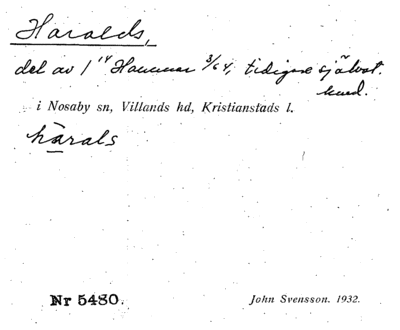 Haralds,
del av 1¹⁴ Hammar 3/64, tidigare självst.
hmd.
i Nosaby sn, Villands hd, Kristianstads l.
hàrals
Nr 5480.
John Svensson. 1932.